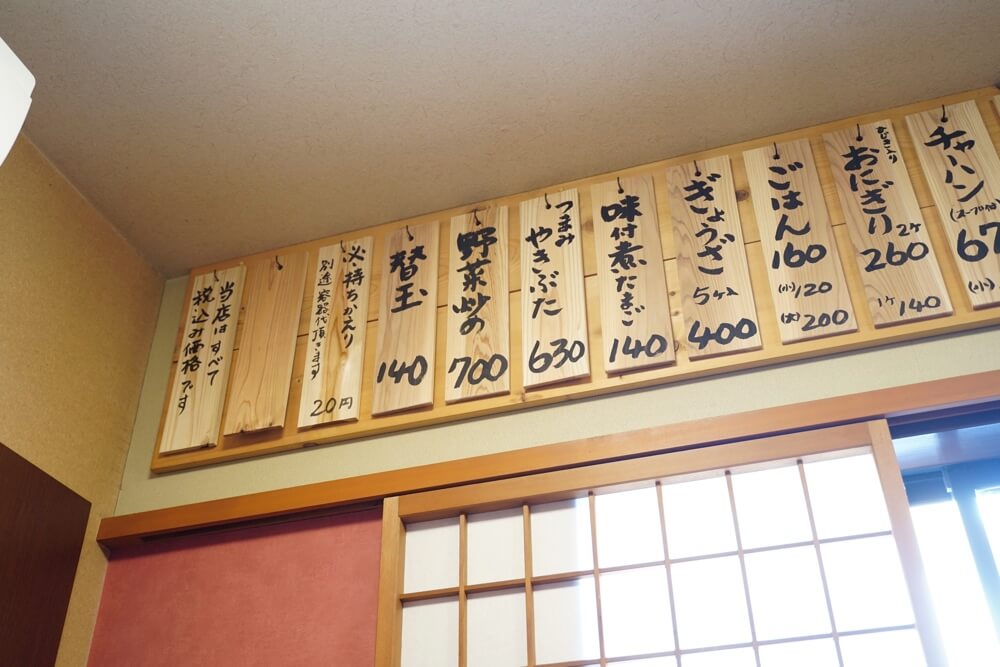 チャハン
(スープ付)
67
(小)
おひたし入り
おにぎり
2ケ
260
1ケ 140
ごはん
160
(小)120
(大)200
ぎょうざ
5ケ入
400
味付煮たまご
140
つまみ
やきぶた
630
野菜炒め
700
替玉
140
※持ちかえり
別途容器代頂きます
20円
当店はすべて
税込み価格です